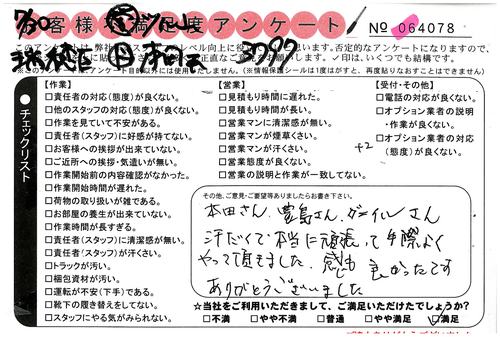 お客様満足度アンケート
No 064078
このアンケートは、弊社
レベル向上に役
思います。否定的なアンケートになりますので、
正直なご意見をお願い致します。✓印は、いくつでも結構です。
※このアンケート
目的以外には使用いたしません。(※情報保護シールは1度はがすと、再度貼りなおすことはできません)
チェックリスト
【作業】
□責任者の対応(態度)が良くない。
□他のスタッフの対応(態度)が良くない。
□作業を見ていて不安がある。
□責任者(スタッフ)に好感が持てない。
□お客様への挨拶が出来ていない。
□ご近所への挨拶・気遣いが無い。
□作業開始前の内容確認がなかった。
□作業開始時間が遅れた。
□荷物の取り扱いが雑である。
□お部屋の養生が出来ていない。
□作業時間が長すぎる。
□責任者(スタッフ)に清潔感が無い。
□責任者(スタッフ)が汗くさい。
□トラックが汚い。
□梱包資材が汚い。
□運転が不安(下手)である。
□靴下の履き替えをしてない。
□スタッフにやる気がみられない。
【営業】
□見積もり時間に遅れた。
□見積もり時間が長い。
□営業マンに清潔感が無い。
□営業マンが煙草くさい。
□営業マンが汗くさい。
□営業態度が良くない。
□営業の説明と作業が一致してない。
【受付・その他】
□電話の対応が良くない。
□オプション業者の説明
・作業が良くない。
□オプション業者の対応
(態度)が良くない。
+2
その他、ご意見・ご要望等ありましたらお書き下さい。
本田さん、豊島さん、ゲイルさん
汗だくで本当に頑張って手際よく
やって頂きました。感じも良かったです
ありがとうございました
☆当社をご利用いただきまして、ご満足いただけたでしょうか?
□不満 □やや不満 □普通 □やや満足 ☑満足